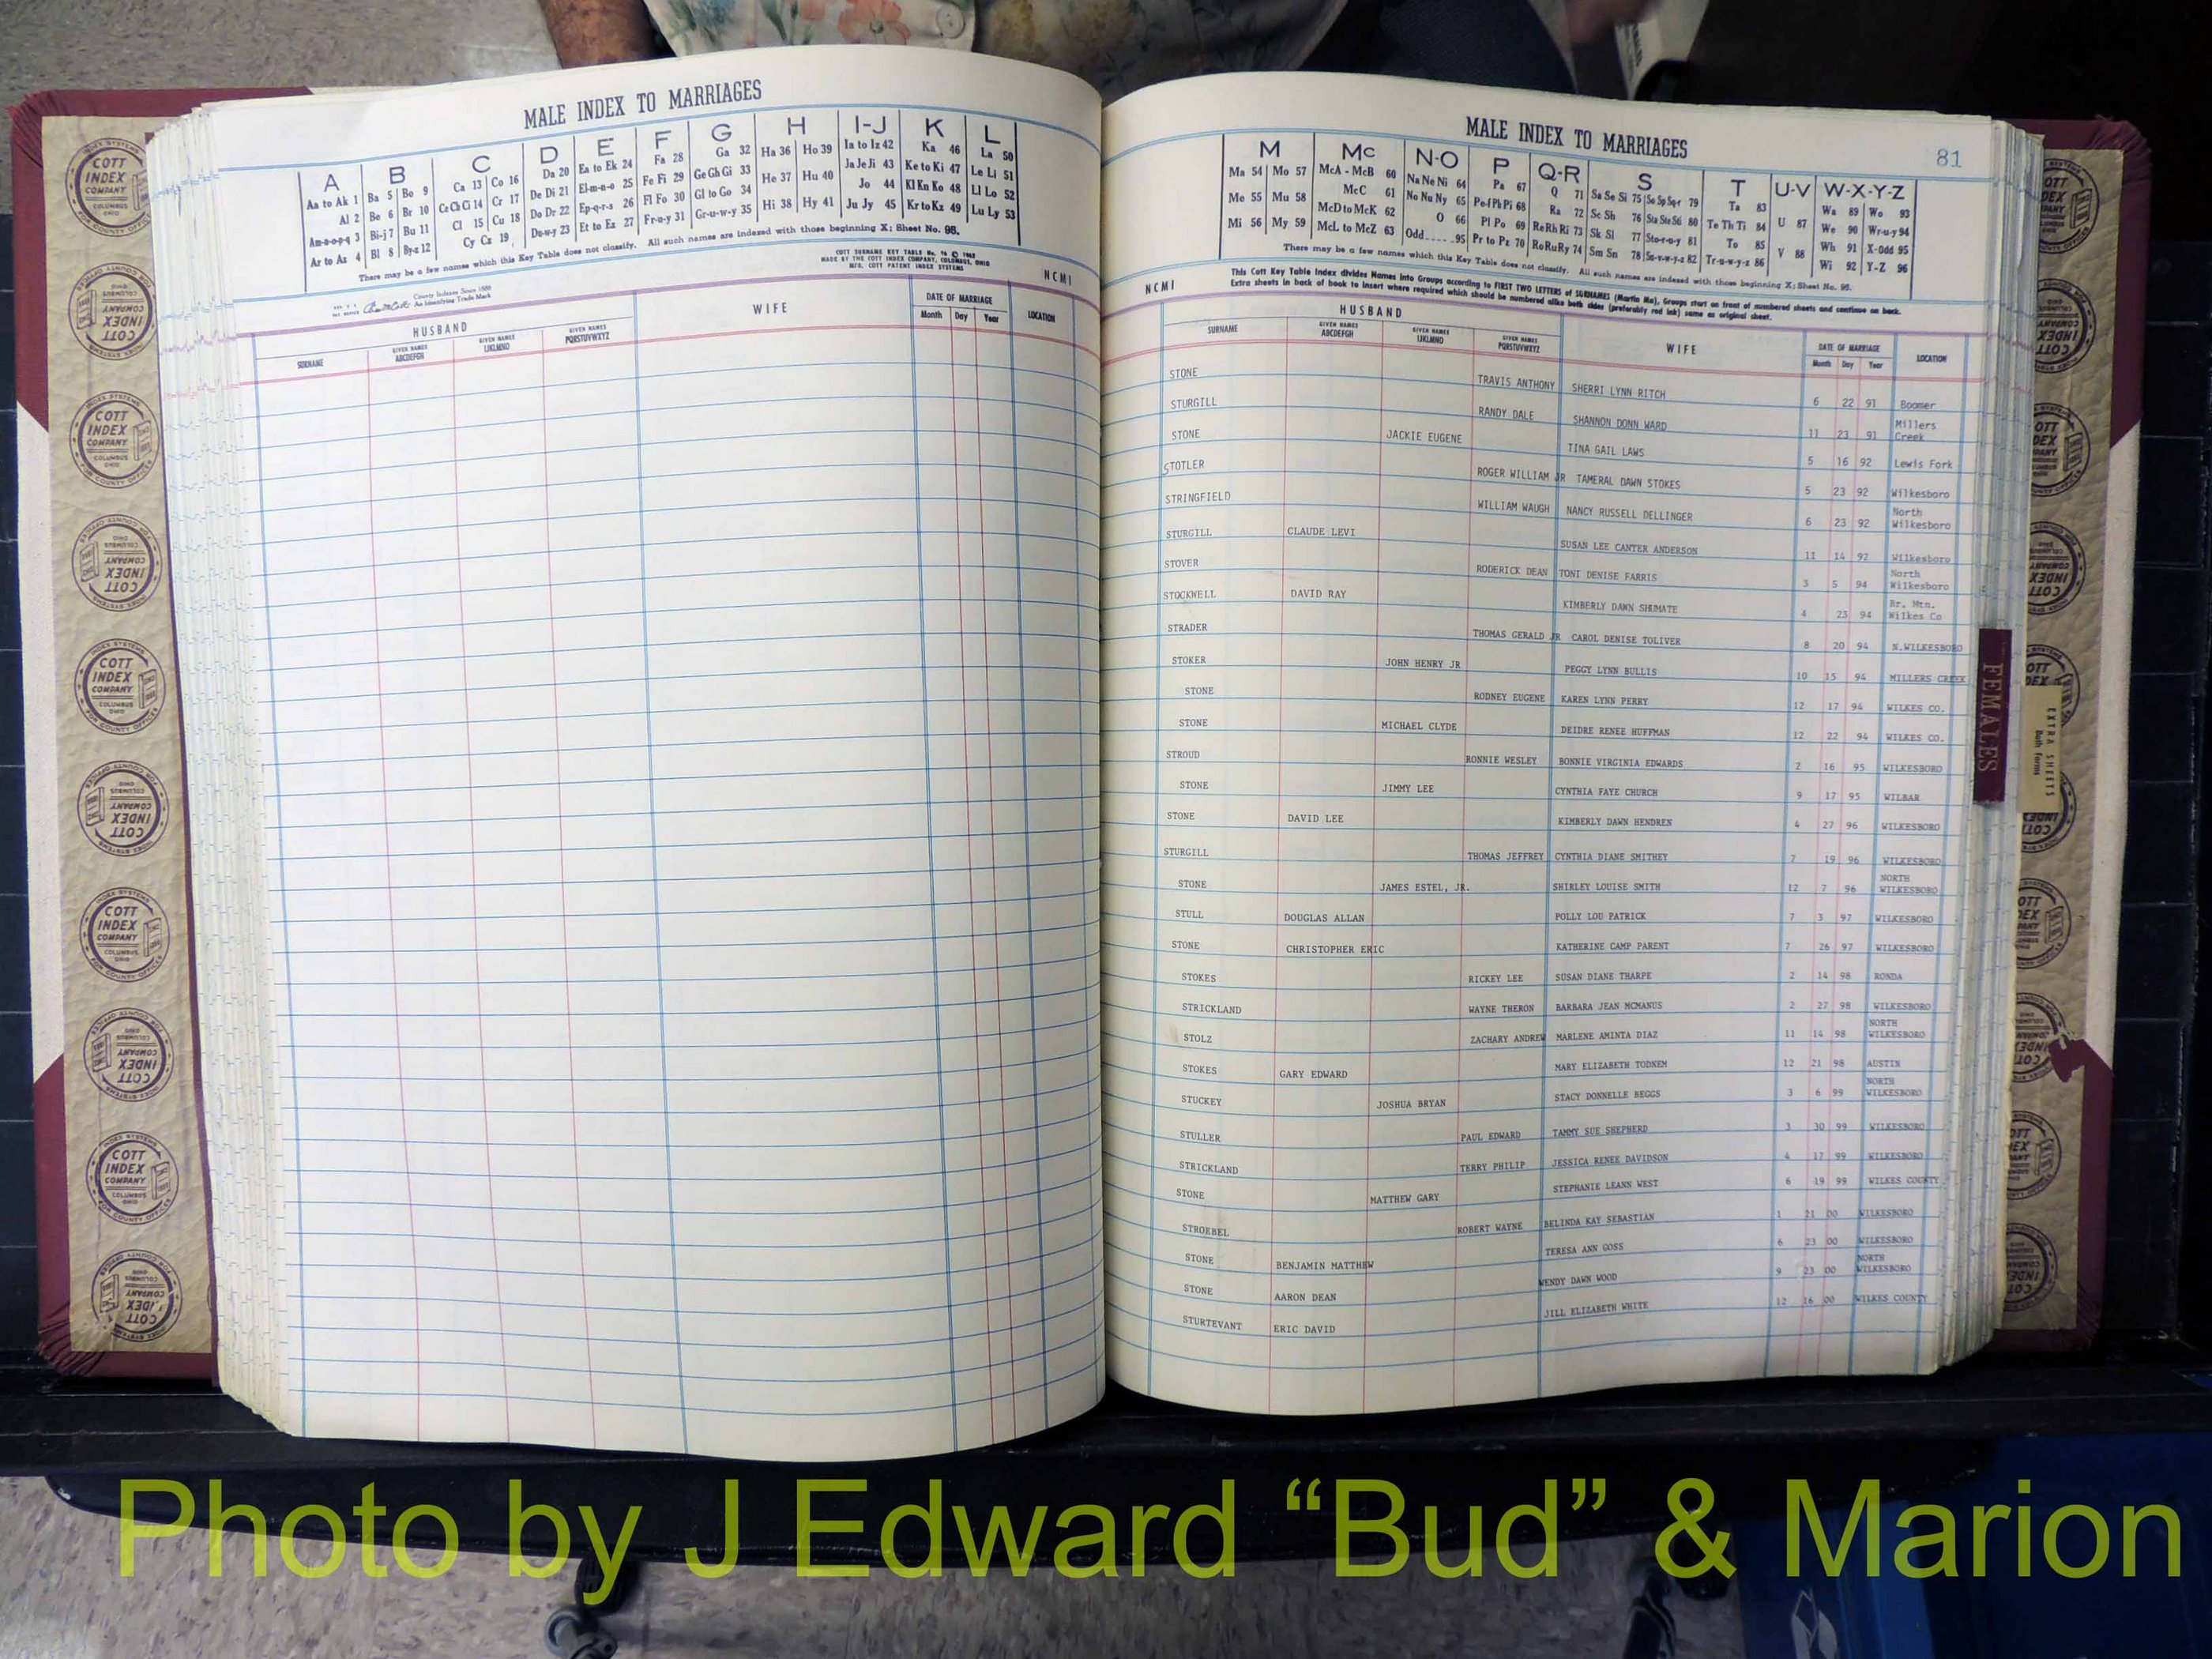 MALE INDEX TO MARRIAGES
A B C D E F G H I-J K L
Aa to Ak 1 Ba 5 Bo 9 Ca 13 Co 16 Da 20 Ea to Ek 24 Fa 28 Ga 32 Ha 36 Ho 39 Ia to Iz 42 Ka 46 La 50
Al 2 Be 6 Br 10 Ce Ch Ci 14 Cr 17 De Di 21 El-m-n-o 25 Fe Fi 29 Ge Gh Gi 33 He 37 Hu 40 Ja Je Ji 43 Ke to Ki 47 Le Li 51
Am-n-o-p-q 3 Bi-j 7 Bu 11 Cl 15 Cu 18 Do Dr 22 Ep-q-r-s 26 Fl Fo 30 Gl to Go 34 Hi 38 Hy 41 Jo 44 Kl Kn Ko 48 Ll Lo 52
Ar to Az 4 Bl 8 By-z 12 Cy Cz 19 Du-w-y 23 Et to Ez 27 Fr-u-y 31 Gr-u-w-y 35 Ju Jy 45 Kr to Kz 49 Lu Ly 53
There may be a few names which this Key Table does not classify. All such names are indexed with those beginning X; Sheet No. 95.
COTT SURNAME KEY TABLE
MADE BY THE COTT INDEX COMPANY, COLUMBUS, OHIO
MFG. COTT PATENT INDEX SYSTEMS
NCMI
County Indexes Since 1888
An Identifying Trade Mark
HUSBAND WIFE DATE OF MARRIAGE LOCATION
SURNAME GIVEN NAMES ABCDEFGH GIVEN NAMES IJKLMNO GIVEN NAMES PQRSTUVWXYZ Month Day Year
MALE INDEX TO MARRIAGES
81
M Mc N-O P Q-R S T U-V W-X-Y-Z
Ma 54 Mo 57 McA - McB 60 Na Ne Ni 64 Pa 67 Q 71 Sa Se Si 75 So Sp Sq-r 79 Ta 83 U 87 Wa 89 Wo 93
Me 55 Mu 58 McC 61 No Nu Ny 65 Pe-f Ph Pi 68 Ra 72 Sc Sh 76 Sta Ste Sti 80 Te Th Ti 84 V 88 We 90 Wr-u-y 94
Mi 56 My 59 McD to McK 62 O 66 Pl Po 69 Re Rh Ri 73 Sk Sl 77 Sto-r-u-y 81 To 85 Wh 91 X-Odd 95
McL to McZ 63 Odd.....95 Pr to Pz 70 Ro Ru Ry 74 Sm Sn 78 Su-v-w-y-z 82 Tr-u-w-y-z 86 Wi 92 Y-Z 96
There may be a few names which this Key Table does not classify. All such names are indexed with those beginning X; Sheet No. 95.
This Cott Key Table Index divides Names into Groups according to FIRST TWO LETTERS of SURNAMES (Martin Ma), Groups start on front of numbered sheets and continue on back.
Extra sheets in back of book to insert where required which should be numbered alike both sides (preferably red ink) same as original sheet.
NCMI
HUSBAND WIFE DATE OF MARRIAGE LOCATION
SURNAME GIVEN NAMES ABCDEFGH GIVEN NAMES IJKLMNO GIVEN NAMES PQRSTUVWXYZ Month Day Year
STONE TRAVIS ANTHONY SHERRI LYNN RITCH 6 22 91 Boomer
STURGILL RANDY DALE SHANNON DONN WARD 11 23 91 Millers Creek
STONE JACKIE EUGENE TINA GAIL LAWS 5 16 92 Lewis Fork
STOTLER ROGER WILLIAM JR TAMERAL DAWN STOKES 5 23 92 Wilkesboro
STRINGFIELD WILLIAM WAUGH NANCY RUSSELL DELLINGER 6 23 92 North Wilkesboro
STURGILL CLAUDE LEVI SUSAN LEE CANTER ANDERSON 11 14 92 Wilkesboro
STOVER RODERICK DEAN TONI DENISE FARRIS 3 5 94 North Wilkesboro
STOCKWELL DAVID RAY KIMBERLY DAWN SHUMATE 4 23 94 Br. Mtn. Wilkes Co
STRADER THOMAS GERALD JR CAROL DENISE TOLIVER 8 20 94 N.WILKESBORO
STOKER JOHN HENRY JR PEGGY LYNN BULLIS 10 15 94 MILLERS CREEK
STONE RODNEY EUGENE KAREN LYNN PERRY 12 17 94 WILKES CO.
STONE MICHAEL CLYDE DEIDRE RENEE HUFFMAN 12 22 94 WILKES CO.
STROUD RONNIE WESLEY BONNIE VIRGINIA EDWARDS 2 16 95 WILKESBORO
STONE JIMMY LEE CYNTHIA FAYE CHURCH 9 17 95 WILBAR
STONE DAVID LEE KIMBERLY DAWN HENDREN 4 27 96 WILKESBORO
STURGILL THOMAS JEFFREY CYNTHIA DIANE SMITHEY 7 19 96 WILKESBORO
STONE JAMES ESTEL, JR. SHIRLEY LOUISE SMITH 12 7 96 NORTH WILKESBORO
STULL DOUGLAS ALLAN POLLY LOU PATRICK 7 3 97 WILKESBORO
STONE CHRISTOPHER ERIC KATHERINE CAMP PARENT 7 26 97 WILKESBORO
STOKES RICKEY LEE SUSAN DIANE THARPE 2 14 98 RONDA
STRICKLAND WAYNE THERON BARBARA JEAN MCMANUS 2 27 98 WILKESBORO
STOLZ ZACHARY ANDREW MARLENE AMINTA DIAZ 11 14 98 NORTH WILKESBORO
STOKES GARY EDWARD MARY ELIZABETH TODNEM 12 21 98 AUSTIN
STUCKEY JOSHUA BRYAN STACY DONNELLE BEGGS 3 6 99 NORTH WILKESBORO
STULLER PAUL EDWARD TAMMY SUE SHEPHERD 3 30 99 WILKESBORO
STRICKLAND TERRY PHILIP JESSICA RENEE DAVIDSON 4 17 99 WILKESBORO
STONE MATTHEW GARY STEPHANIE LEANN WEST 6 19 99 WILKES COUNTY
STROEBEL ROBERT WAYNE BELINDA KAY SEBASTIAN 1 21 00 WILKESBORO
STONE BENJAMIN MATTHEW TERESA ANN GOSS 6 23 00 WILKESBORO
STONE AARON DEAN WENDY DAWN WOOD 9 23 00 NORTH WILKESBORO
STURTEVANT ERIC DAVID JILL ELIZABETH WHITE 12 16 00 WILKES COUNTY
FEMALES
EXTRA SHEETS
Both Forms
COTT INDEX COMPANY
COLUMBUS OHIO
INDEX SYSTEMS
FOR COUNTY OFFICES
Photo by J Edward “Bud” & Marion